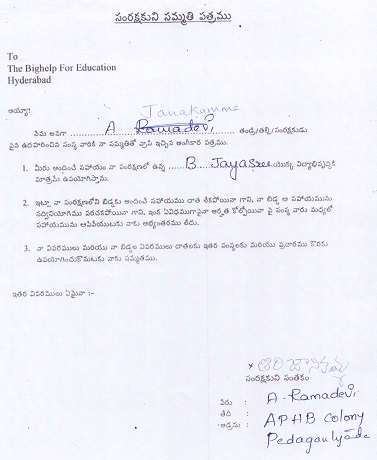 సంరక్షకుని సమ్మతి పత్రము
To
The Bighelp For Education
Hyderabad
అయ్యా!
Janakamma
నేను అనగా ..........A Ramadevi.......... తండ్రి/తల్లి/సంరక్షకుడు
పైన ఉదహరించిన సంస్థ వారికి నా సమ్మతితో వ్రాసి ఇచ్చిన అంగీకార పత్రము.
1. మీరు అందించే సహాయం నా సంరక్షణలో ఉన్న ..........B Jayasree యొక్క విద్యాభివృద్ధికి
మాత్రమే ఉపయోగిస్తాను.
2. ఇట్లు నా సంరక్షణలోని బిడ్డకు అందించే సహాయము దాత లేకపోయినా గాని, నా బిడ్డ ఆ సహాయమును
సద్వినియోగము పరచకపోయినా గాని, ఇంక ఏవిధముగానైనా అర్హత కోల్పోయినా పై సంస్థ వారు మధ్యలో
సహాయమును ఆపివేయుటకు నాకు అభ్యంతరము లేదు.
3. నా వివరములు మరియు నా బిడ్డల వివరములు దాతలకు ఇతర సంస్థలకు మరియు ప్రచారము కొరకు
ఉపయోగించుకొనుటకు నాకు సమ్మతము.
ఇతర వివరములు ఏమైనా :-
x
సంరక్షకుని సంతకం
పేరు : A-Ramadevi
తేది :
అడ్రసు : APHB Colony